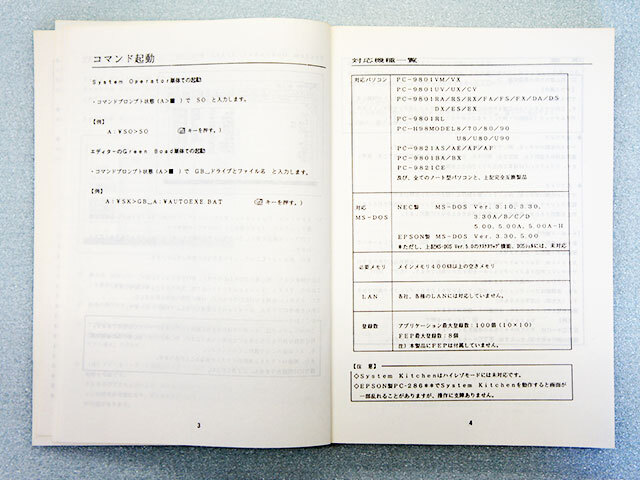 コマンド起動
System Operator単体での起動
・コマンドプロンプト状態（A>■ ）で SO と入力します。
【例】
A:¥SO>SO （ キーを押す。）
エディターのGreen Boad単体での起動
・コマンドプロンプト状態（A>■ ）で GB_ドライブとファイル名 と入力します。
【例】
A:¥SK>GB_A:¥AUTOEXE.BAT （ キーを押す。）
3
対応機種一覧
対応パソコン
PC-9801VM/VX
PC-9801UV/UX/CV
PC-9801RA/RS/RX/FA/FS/FX/DA/DS
DX/ES/EX
PC-9801RL
PC-H98MODEL8/70/80/90
U8/U80/U90
PC-9821AS/AE/AP/AF
PC-9801BA/BX
PC-9821CE
及び、全てのノート型パソコンと、上記完全互換製品
対応
MS-DOS
NEC製 MS-DOS Ver. 3.10, 3.30,
3.30A/B/C/D
5.00, 5.00A, 5.00A-H
EPSON製 MS-DOS Ver. 3.30, 5.00
*ただし、上記MS-DOS Ver.5.0のﾀｽｸｽﾜｯﾌﾟ機能、DOSｼｪﾙには、未対応
必要メモリ
メインメモリ400KB以上の空きメモリ
LAN
各社、各種のLANには対応していません。
登録数
アプリケーション最大登録数：100個（10×10）
FEP最大登録数：8個
注）本製品にFEPは付属していません。
【注 意】
◇System Kitchenはハイレゾモードには未対応です。
◇EPSON製PC-286**でSystem Kitchenを動作すると画面が
一部乱れることがありますが、操作に支障ありません。
4